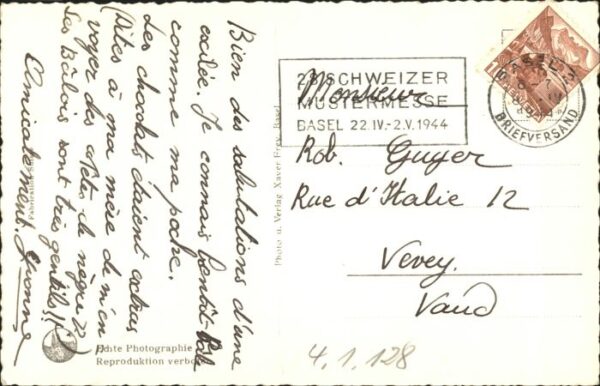 Bien des salutations d'une
exilée. Je connais bientôt Bâle
comme ma poche.
Les chocolats étaient extras
(Dites à ma mère de m'en
voyer des
Les Bâlois sont très gentils!!
Amicalement. Yvonne
Photo u. Verlag Xaver Frey, Basel
Echte Photographie
Reproduktion verboten
28. SCHWEIZER
MUSTERMESSE
BASEL 22.IV.-2.V.1944
BASEL
BRIEFVERSAND
Monsieur
Rob. Guyer
Rue d'Italie 12
Vevey.
Vaud
4.1.128